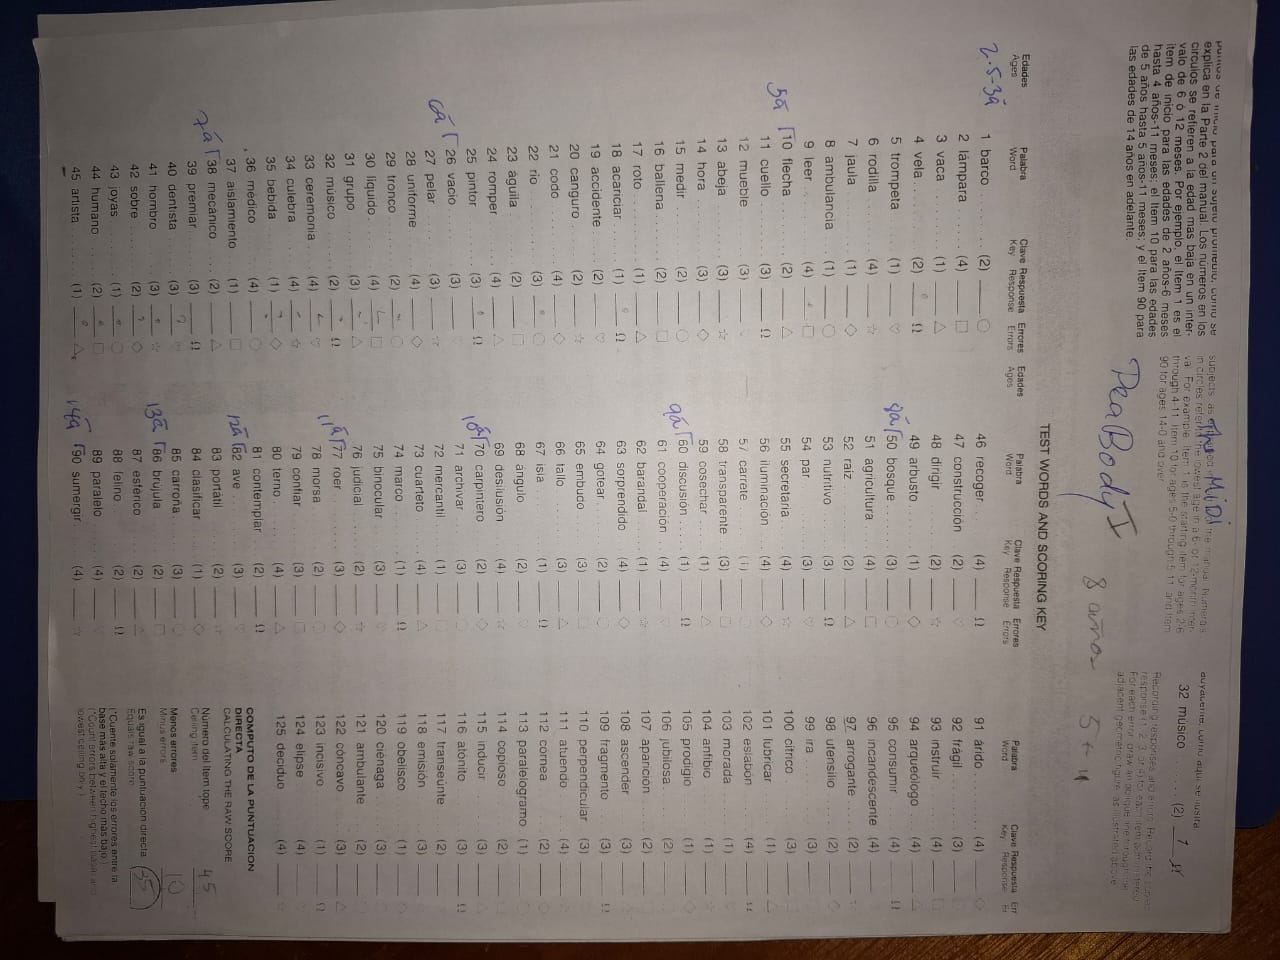 puntos de inicio para un sujeto promedio, como se
explica en la Parte 2 del manual. Los números en los
círculos se refieren a la edad mas baja en un inter-
valo de 6 ó 12 meses. Por ejemplo, el ítem 1 es el
ítem de inicio para las edades de 2 años-6 meses
hasta 4 años-11 meses; el ítem 10 para las edades
de 5 años hasta 5 años-11 meses; y el ítem 90 para
las edades de 14 años en adelante.
in circles refer to the lowest age in a 6- or 12-month inter-
val. For example, Item 1 is the starting item for ages 2-6
through 4-11; Item 10 for ages 5-0 through 5-11; and Item
90 for ages 14-0 and over.
adyacente, como aquí se ilustra
32 musico (2)
Recording responses and errors: Record the subject's
response (1, 2, 3, or 4) for each item administered.
For each error, draw an oblique line through the
adjacent geometric figure, as illustrated above.
PeaBody I
8 años 5 + 4
TEST WORDS AND SCORING KEY
Edades Palabra Clave Respuesta Errores
Ages Word Key Response Errors
2.5-3a
1 barco (2)
2 lámpara (4)
3 vaca (1)
4 vela (2)
5 trompeta (1)
6 rodilla (4)
7 jaula (1)
8 ambulancia (1)
9 leer (4)
5a 10 flecha (2)
11 cuello (3)
12 mueble (3)
13 abeja (3)
14 hora (3)
15 medir (2)
16 ballena (2)
17 roto (1)
18 acariciar (1)
19 accidente (2)
20 canguro (2)
21 codo (4)
22 río (3)
23 águila (2)
24 romper (4)
25 pintor (3)
6a 26 vacío (3)
27 pelar (3)
28 uniforme (4)
29 tronco (2)
30 líquido (4)
31 grupo (3)
32 músico (2)
33 ceremonia (4)
34 culebra (4)
35 bebida (1)
36 médico (4)
37 aislamiento (1)
7a 38 mecánico (2)
39 premiar (3)
40 dentista (3)
41 hombro (3)
42 sobre (2)
43 joyas (1)
44 humano (2)
45 artista (1)
Edades Palabra Clave Respuesta Errores
Ages Word Key Response Errors
46 recoger (4)
47 construcción (2)
48 dirigir (2)
49 arbusto (1)
8a 50 bosque (3)
51 agricultura (4)
52 raíz (2)
53 nutritivo (3)
54 par (3)
55 secretaria (4)
56 iluminación (4)
57 carrete (1)
58 transparente (3)
59 cosechar (1)
9a 60 discusión (1)
61 cooperación (4)
62 barandal (1)
63 sorprendido (4)
64 gotear (2)
65 embudo (3)
66 tallo (3)
67 isla (1)
68 ángulo (2)
69 desilusión (4)
10a 70 carpintero (2)
71 archivar (3)
72 mercantil (1)
73 cuarteto (4)
74 marco (1)
75 binocular (3)
76 judicial (2)
11a 77 roer (3)
78 morsa (2)
79 confiar (3)
80 terno (4)
81 contemplar (2)
12a 82 ave (3)
83 portátil (2)
84 clasificar (1)
85 carroña (3)
13a 86 brújula (2)
87 esférico (2)
88 felino (2)
89 paralelo (4)
14a 90 sumergir (4)
Palabra Clave Respuesta
Word Key Response
91 árido (4)
92 frágil (3)
93 instruir (4)
94 arqueólogo (4)
95 consumir (4)
96 incandescente (4)
97 arrogante (2)
98 utensilio (2)
99 ira (3)
100 cítrico (3)
101 lubricar (1)
102 eslabón (4)
103 morada (1)
104 anfibio (1)
105 prodigio (1)
106 jubilosa (2)
107 aparición (2)
108 ascender (3)
109 fragmento (3)
110 perpendicular (3)
111 atuendo (4)
112 córnea (2)
113 paralelogramo (1)
114 copioso (2)
115 inducir (3)
116 atónito (3)
117 transeúnte (2)
118 emisión (3)
119 obelisco (1)
120 ciénaga (3)
121 ambulante (2)
122 cóncavo (3)
123 incisivo (1)
124 elipse (4)
125 deciduo (4)
COMPUTO DE LA PUNTUACION
DIRECTA
CALCULATING THE RAW SCORE
Número del ítem tope 45
Ceiling item
Menos errores 10
Minus errors
Es igual a la puntuación directa 35
Equals raw score
(*Cuente solamente los errores entre la
base mas alta y el techo mas bajo.)
(*Count errors between highest basal and
lowest ceiling only.)